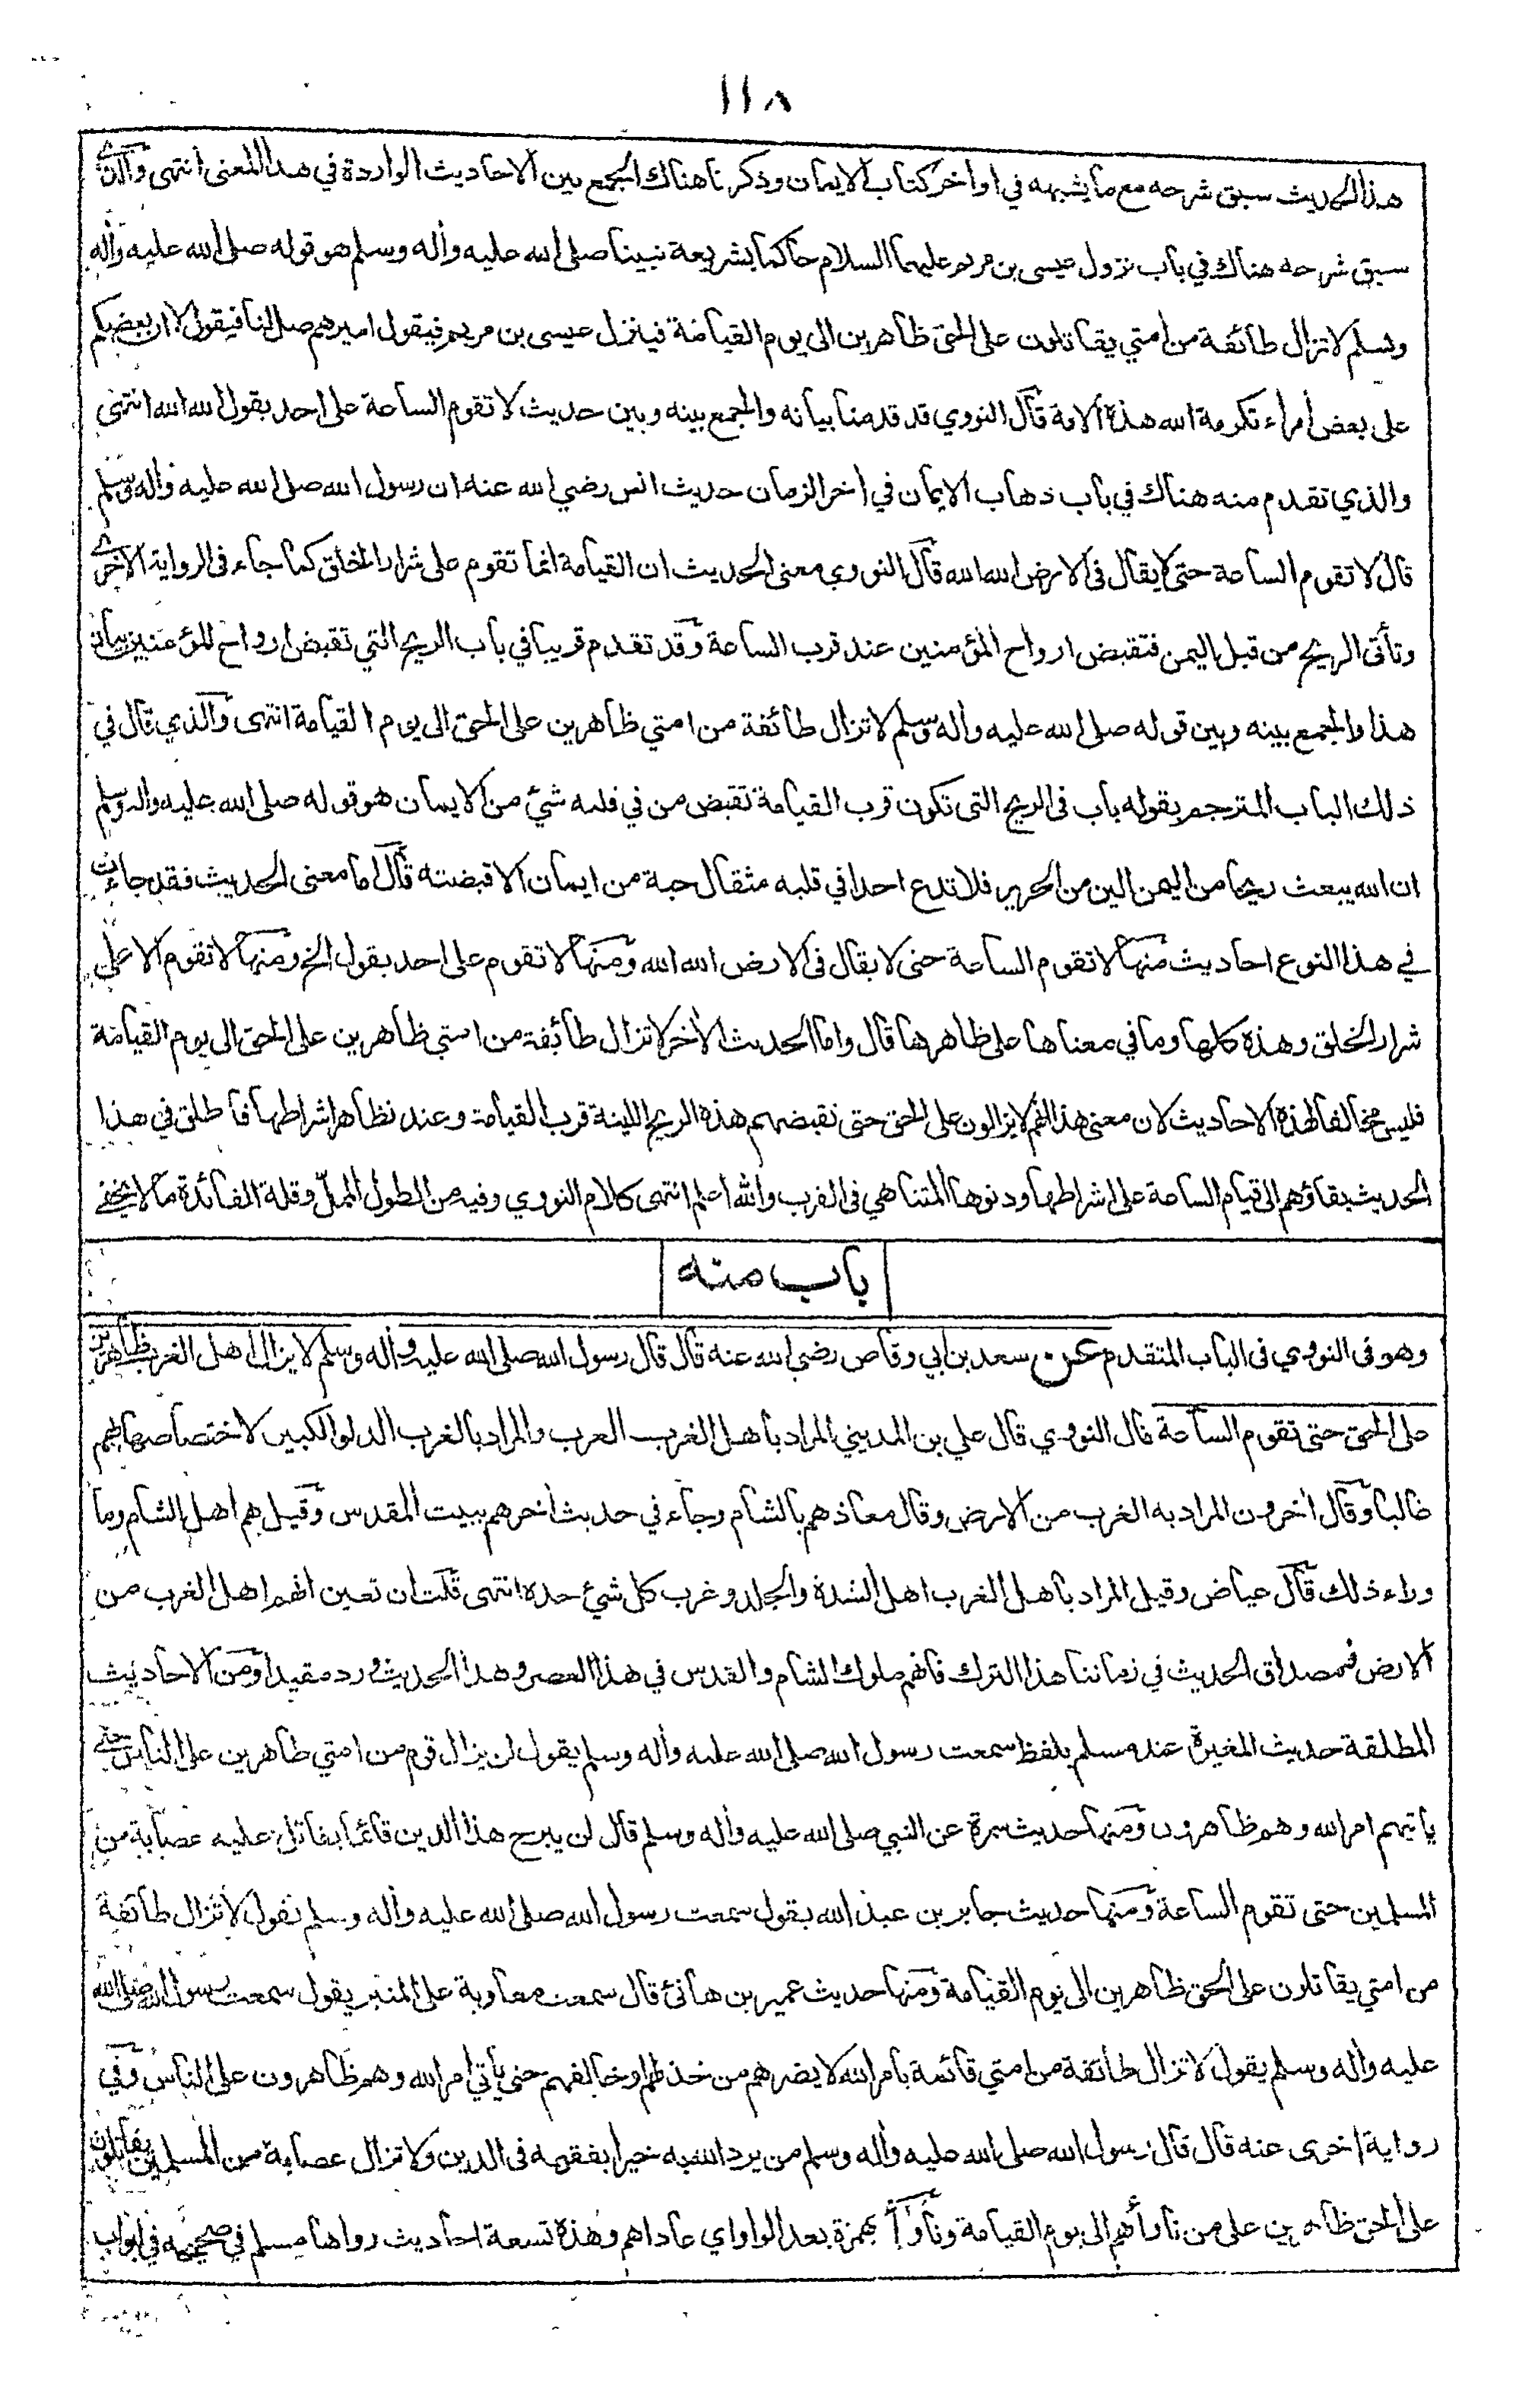 ١١٨
هذا الحديث سبق شرحه مع ما يشبهه في اواخر كتاب الايمان وذكرنا هناك الجمع بين الاحاديث الواردة في هذا المعنى انتهى والذي
سبق شرحه هناك في باب نزول عيسى بن مريم عليهما السلام حاكما بشريعة نبينا صلى الله عليه وأله وسلم هو قوله صلى الله عليه وأله
وسلم لا تزال طائفة من امتي يقاتلون على الحق ظاهرين الى يوم القيامة فينزل عيسى بن مريم فيقول اميرهم صل لنا فيقول لا ان بعضكم
على بعض أمراء تكرمة الله هذه الامة قال النووي قد قدمنا بيانه والجمع بينه وبين حديث لا تقوم الساعة على احد يقول الله الله انتهى
والذي تقدم منه هناك في باب ذهاب الايمان في أخر الزمان حديث انس رضي الله عنه ان رسول الله صلى الله عليه وأله وسلم
قال لا تقوم الساعة حتى لا يقال في الارض الله الله قال النووي معنى الحديث ان القيامة انما تقوم على شرار الخلق كما جاء في الرواية الاخرى
وتأتى الريح من قبل اليمن فتقبض ارواح المؤمنين عند قرب الساعة وقد تقدم قريبا في باب الريح التي تقبض ارواح المؤمنين بيان
هذا والجمع بينه وبين قوله صلى الله عليه وأله وسلم لا تزال طائفة من امتي ظاهرين على الحق الى يوم القيامة انتهى والذي قال في
ذلك الباب المترجم بقوله باب في الريح التي تكون قرب القيامة تقبض من في قلبه شيء من الايمان هو قوله صلى الله عليه واله وسلم
ان الله يبعث ريحا من اليمن الين من الحرير فلا تدع احدا في قلبه مثقال حبة من ايمان الا قبضته قال اما معنى الحديث فقد جاءت
في هذا النوع احاديث منها لا تقوم الساعة حتى لا يقال في الارض الله الله ومنها لا تقوم على احد يقول الخ ومنها لا تقوم الا على
شرار الخلق وهذه كلها وما في معناها على ظاهرها قال واما الحديث الأخر لا تزال طائفة من امتي ظاهرين على الحق الى يوم القيامة
فليس مخالفا لهذه الاحاديث لان معنى هذا انهم لا يزالون على الحق حتى تقبضهم هذه الريح اللينة قرب القيامة وعند تظاهر اشراطها فاطلق في هذا
الحديث بقاؤهم الى قيام الساعة على اشراطها ودنوها المتناهي في القرب والله اعلم انتهى كلام النووي وفيه من الطول الممل وقلة الفائدة ما لا يخفى
باب منه
وهو في النووي في الباب المتقدم عن سعد بن ابي وقاص رضي الله عنه قال قال رسول الله صلى الله عليه وأله وسلم لا يزال اهل الغرب ظاهرين
على الحق حتى تقوم الساعة قال النووي قال علي بن المديني المراد باهل الغرب العرب والمراد بالغرب الدلو الكبير لاختصاصها بهم
غالبا وقال أخرون المراد به الغرب من الارض وقال معاذ هم بالشام وجاء في حديث أخر هم ببيت المقدس وقيل هم اهل الشام وما
وراء ذلك قال عياض وقيل المراد باهل الغرب اهل الشدة والجلد وغرب كل شيء حده انتهى قلت ان تعين انهم اهل الغرب من
الارض فمصداق الحديث في زماننا هذا الترك فانهم ملوك الشام والقدس في هذا العصر وهذا الحديث ورد مقيدا ومن الاحاديث
المطلقة حديث المغيرة عند مسلم بلفظ سمعت رسول الله صلى الله عليه وأله وسلم يقول لن يزال قوم من امتي ظاهرين على الناس حتى
ياتيهم امر الله وهم ظاهرون ومنها حديث سمرة عن النبي صلى الله عليه وأله وسلم قال لن يبرح هذا الدين قائما يقاتل عليه عصابة من
المسلمين حتى تقوم الساعة ومنها حديث جابر بن عبد الله يقول سمعت رسول الله صلى الله عليه وأله وسلم يقول لا تزال طائفة
من امتي يقاتلون على الحق ظاهرين الى يوم القيامة ومنها حديث عمير بن هانئ قال سمعت معاوية على المنبر يقول سمعت رسول الله صلى الله
عليه واله وسلم يقول لا تزال طائفة من امتي قائمة بامر الله لا يضرهم من خذلهم او خالفهم حتى يأتي امر الله وهم ظاهرون على الناس وفي
رواية اخرى عنه قال قال رسول الله صلى الله عليه وأله وسلم من يرد الله به خيرا يفقهه في الدين ولا تزال عصابة من المسلمين يقاتلون
على الحق ظاهرين على من ناوأهم الى يوم القيامة وناوأ بهمزة بعد الواو اي عاداهم وهذه تسعة احاديث رواها مسلم في صحيحه في ابواب